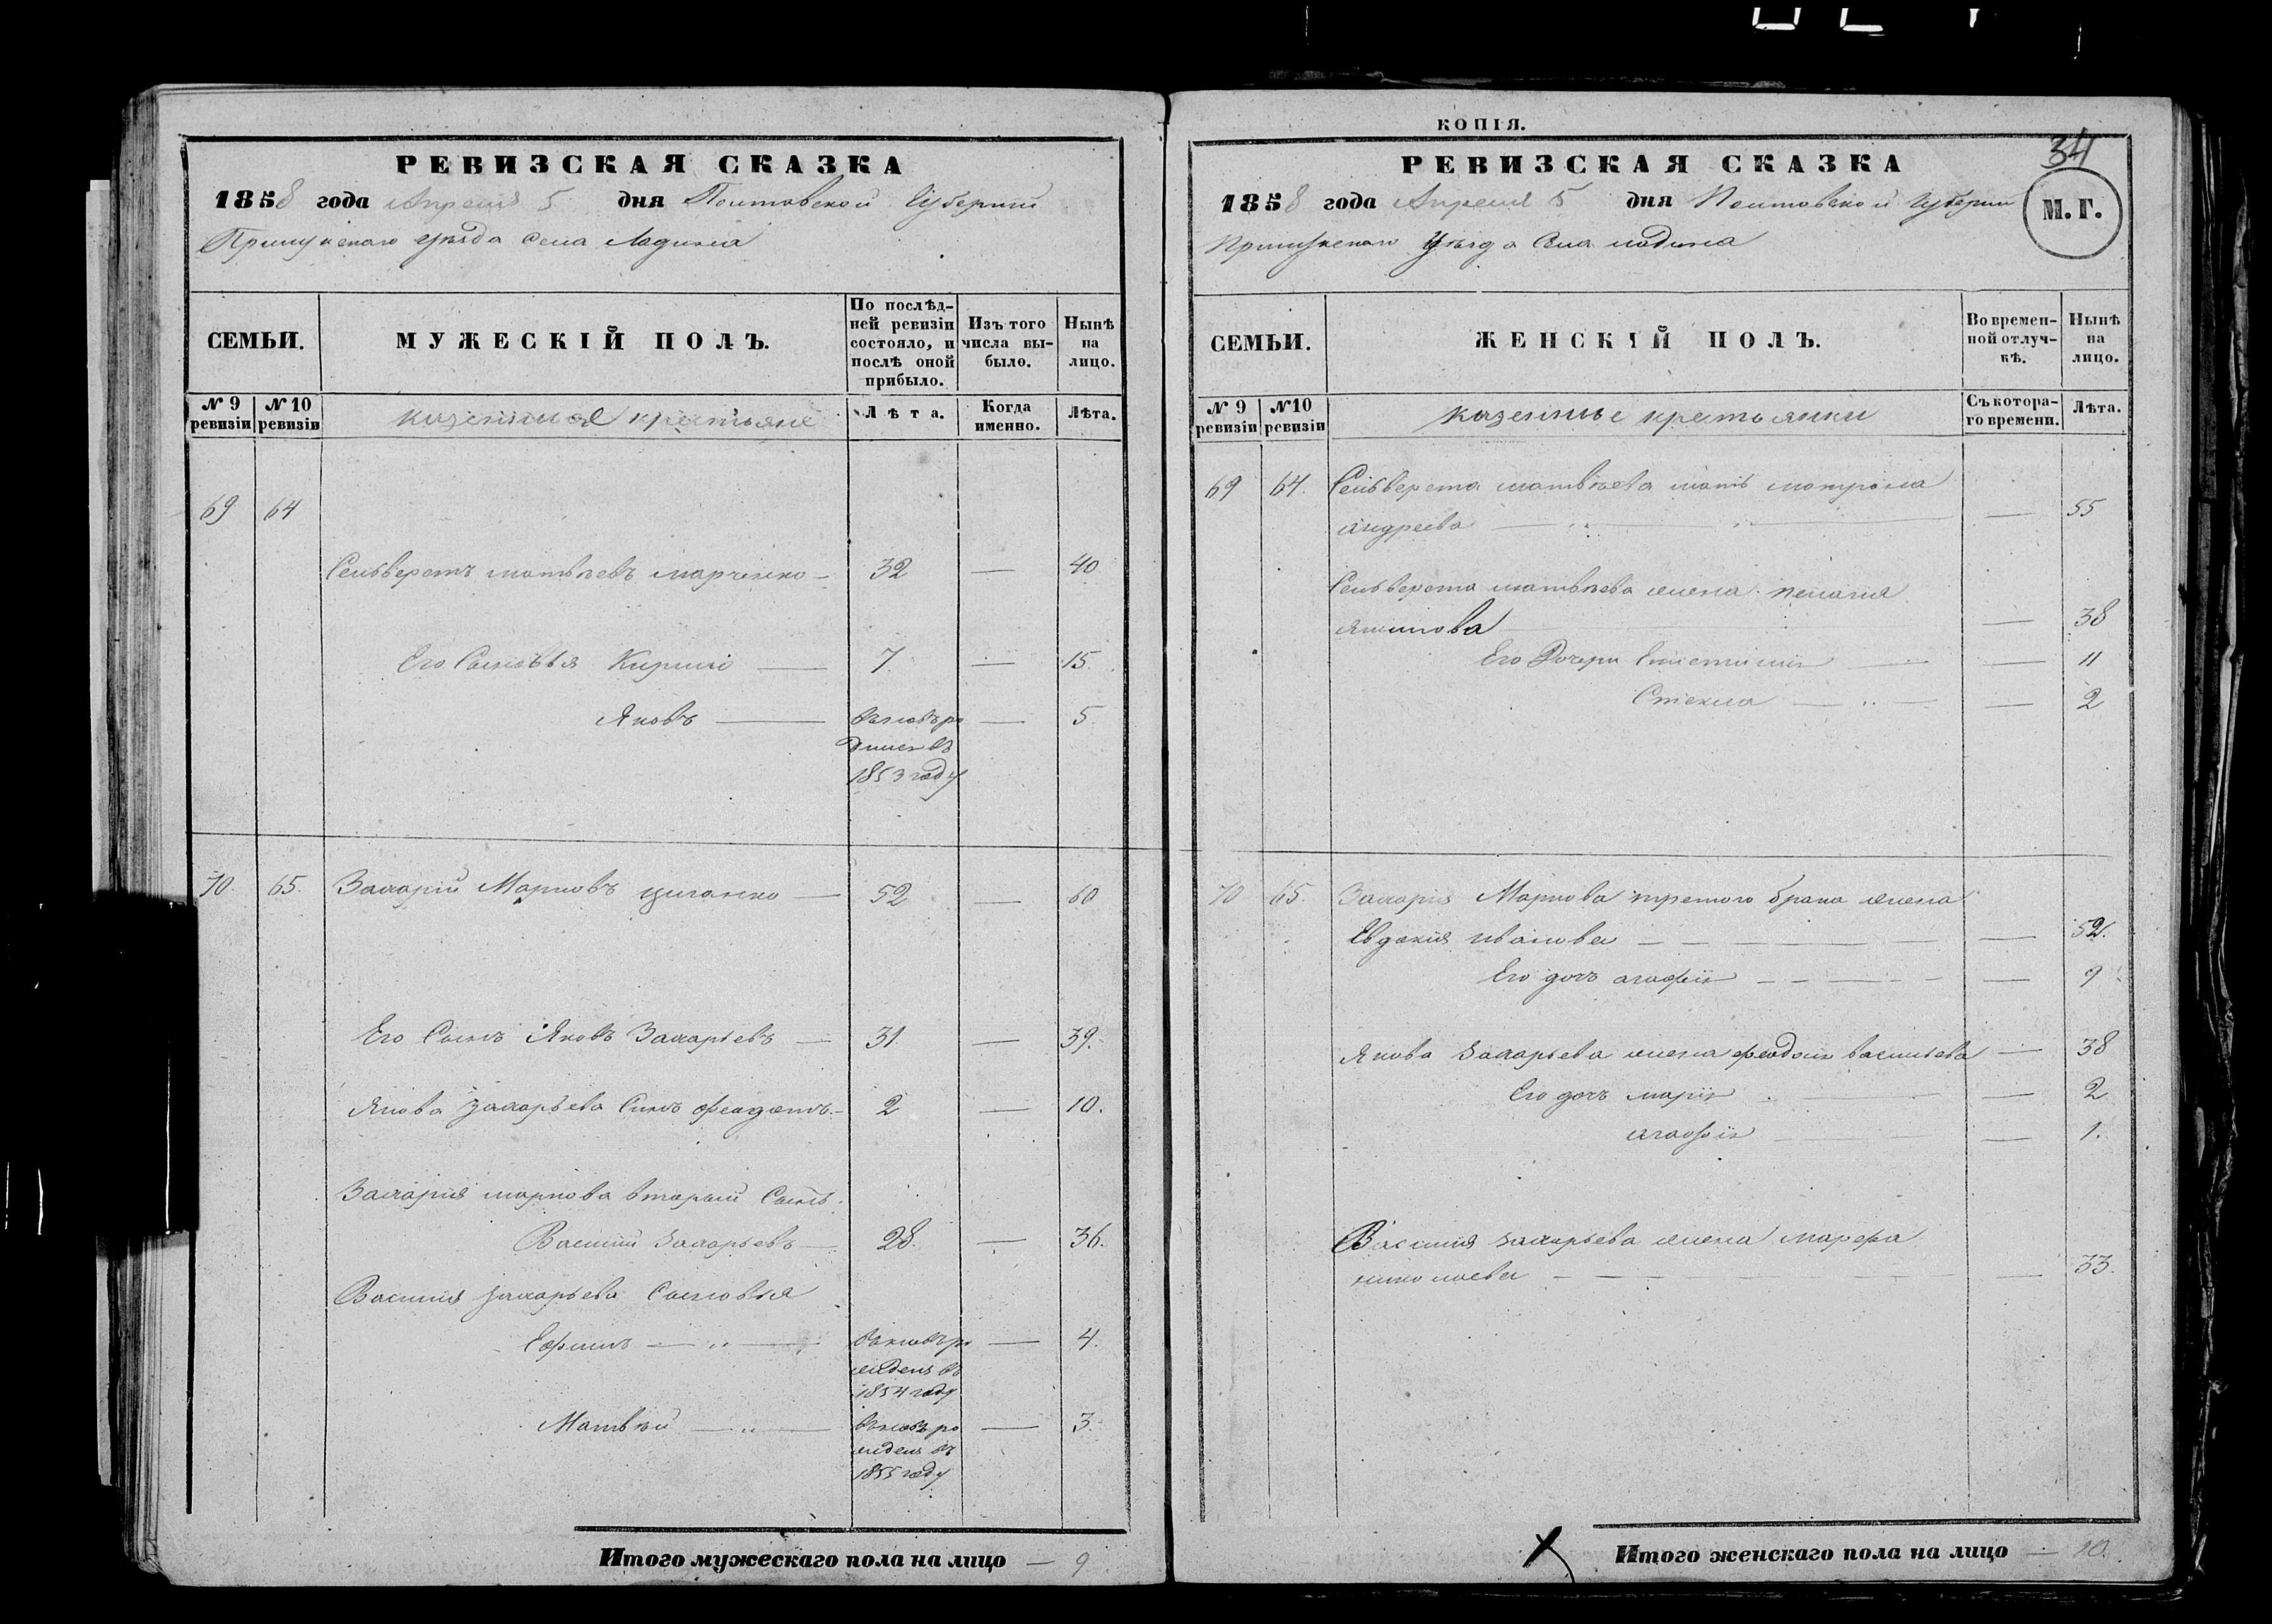 РЕВИЗСКАЯ СКАЗКА
1858 года Апреля 5 дня Полтавской Губернии
Прилукского уезда Села Ладина
СЕМЬИ.
МУЖЕСКІЙ ПОЛЪ.
По послѣд-
ней ревизіи
состояло, и
послѣ оной
прибыло.
Изъ того
числа вы-
было.
Нынѣ
на
лицо.
№ 9
ревизіи
№ 10
ревизіи
казенные крестьяне
Лѣта.
Когда
именно.
Лѣта.
69 64
Сельверстъ матвѣевъ марченко — 32 — 40
Его Сыновья Кирило — 7 — 15.
Яковъ — вновь ро — 5.
дился въ
1853 году
70. 65. Захарій Марковъ циганко — 52 — 60
Его Сынъ Яковъ Захарьевъ — 31. — 39.
Якова захарьева Сынъ феодотъ. — 2 — 10.
Захарія маркова вторый Сынъ.
Василій Захарьевъ — 28. — 36.
Василія захарьева Сыновья
Ефимъ — „ — вновь ро — 4.
жденъ въ
1854 году
Матвѣй — „ — вновь ро — 3.
жденъ въ
1855 году
Итого мужескаго пола на лицо — 9
КОПІЯ.
34
РЕВИЗСКАЯ СКАЗКА
1858 года Апреля 5 дня Полтавской Губернии
М. Г.
Прилукского Уезда Села ладина
СЕМЬИ.
ЖЕНСКІЙ ПОЛЪ.
Во времен-
ной отлуч-
кѣ.
Нынѣ
на
лицо.
№ 9
ревизіи
№ 10
ревизіи
казенные крестьянки
Съ котора-
го времени.
Лѣта.
69 64. Сельверста матвѣева мать мотрона
андреева — „ — — 55
Сельверста матвѣева жена пелагия
якимова — — 38
Его Дочери — — 11
Стекла — „ — — 2
70 65. Захария Маркова третого брака жена
Евдокия иванова — — 52.
Его дочъ агафія — — 9
Якова Захарьева жена феодосія васильева — 38
Его дочъ марія — — 2
агафія — — 1.
Василия захарьева жена марфа
николаева — — 33.
Итого женскаго пола на лицо — 10.